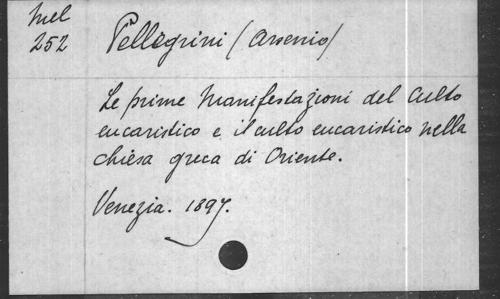 Mel
252
Pellegrini (Arsenio)
Le prime Manifestazioni del Culto
eucaristico e il culto eucaristico nella
chiesa greca di Oriente.
Venezia. 1897.